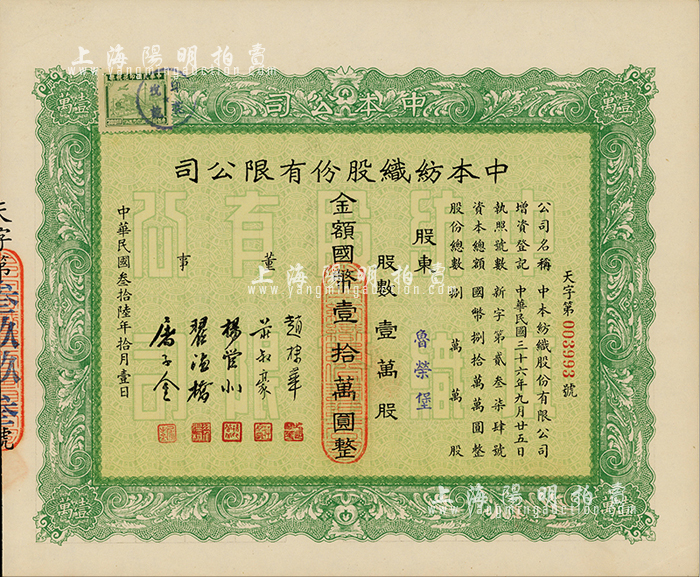 上海陽明拍賣
www.yangmingauction.com
中本公司
壹萬
壹萬
中本紡織股份有限公司
天字第003993號
公司名稱 中本紡織股份有限公司
增資登記 中華民國三十六年九月廿五日
執照號數 新字第貳叁柒肆號
資本總額 國幣捌拾萬萬圓整
股份總數 捌萬萬股
股東 魯榮堡
股數 壹萬股
金額國幣壹拾萬圓整
董事
中華民國叁拾陸年拾月壹日
天字第叁玖玖叁號
上海陽明拍賣
www.yangmingauction.com
上海陽明拍賣
www.yangmingauction.com
壹萬
壹萬